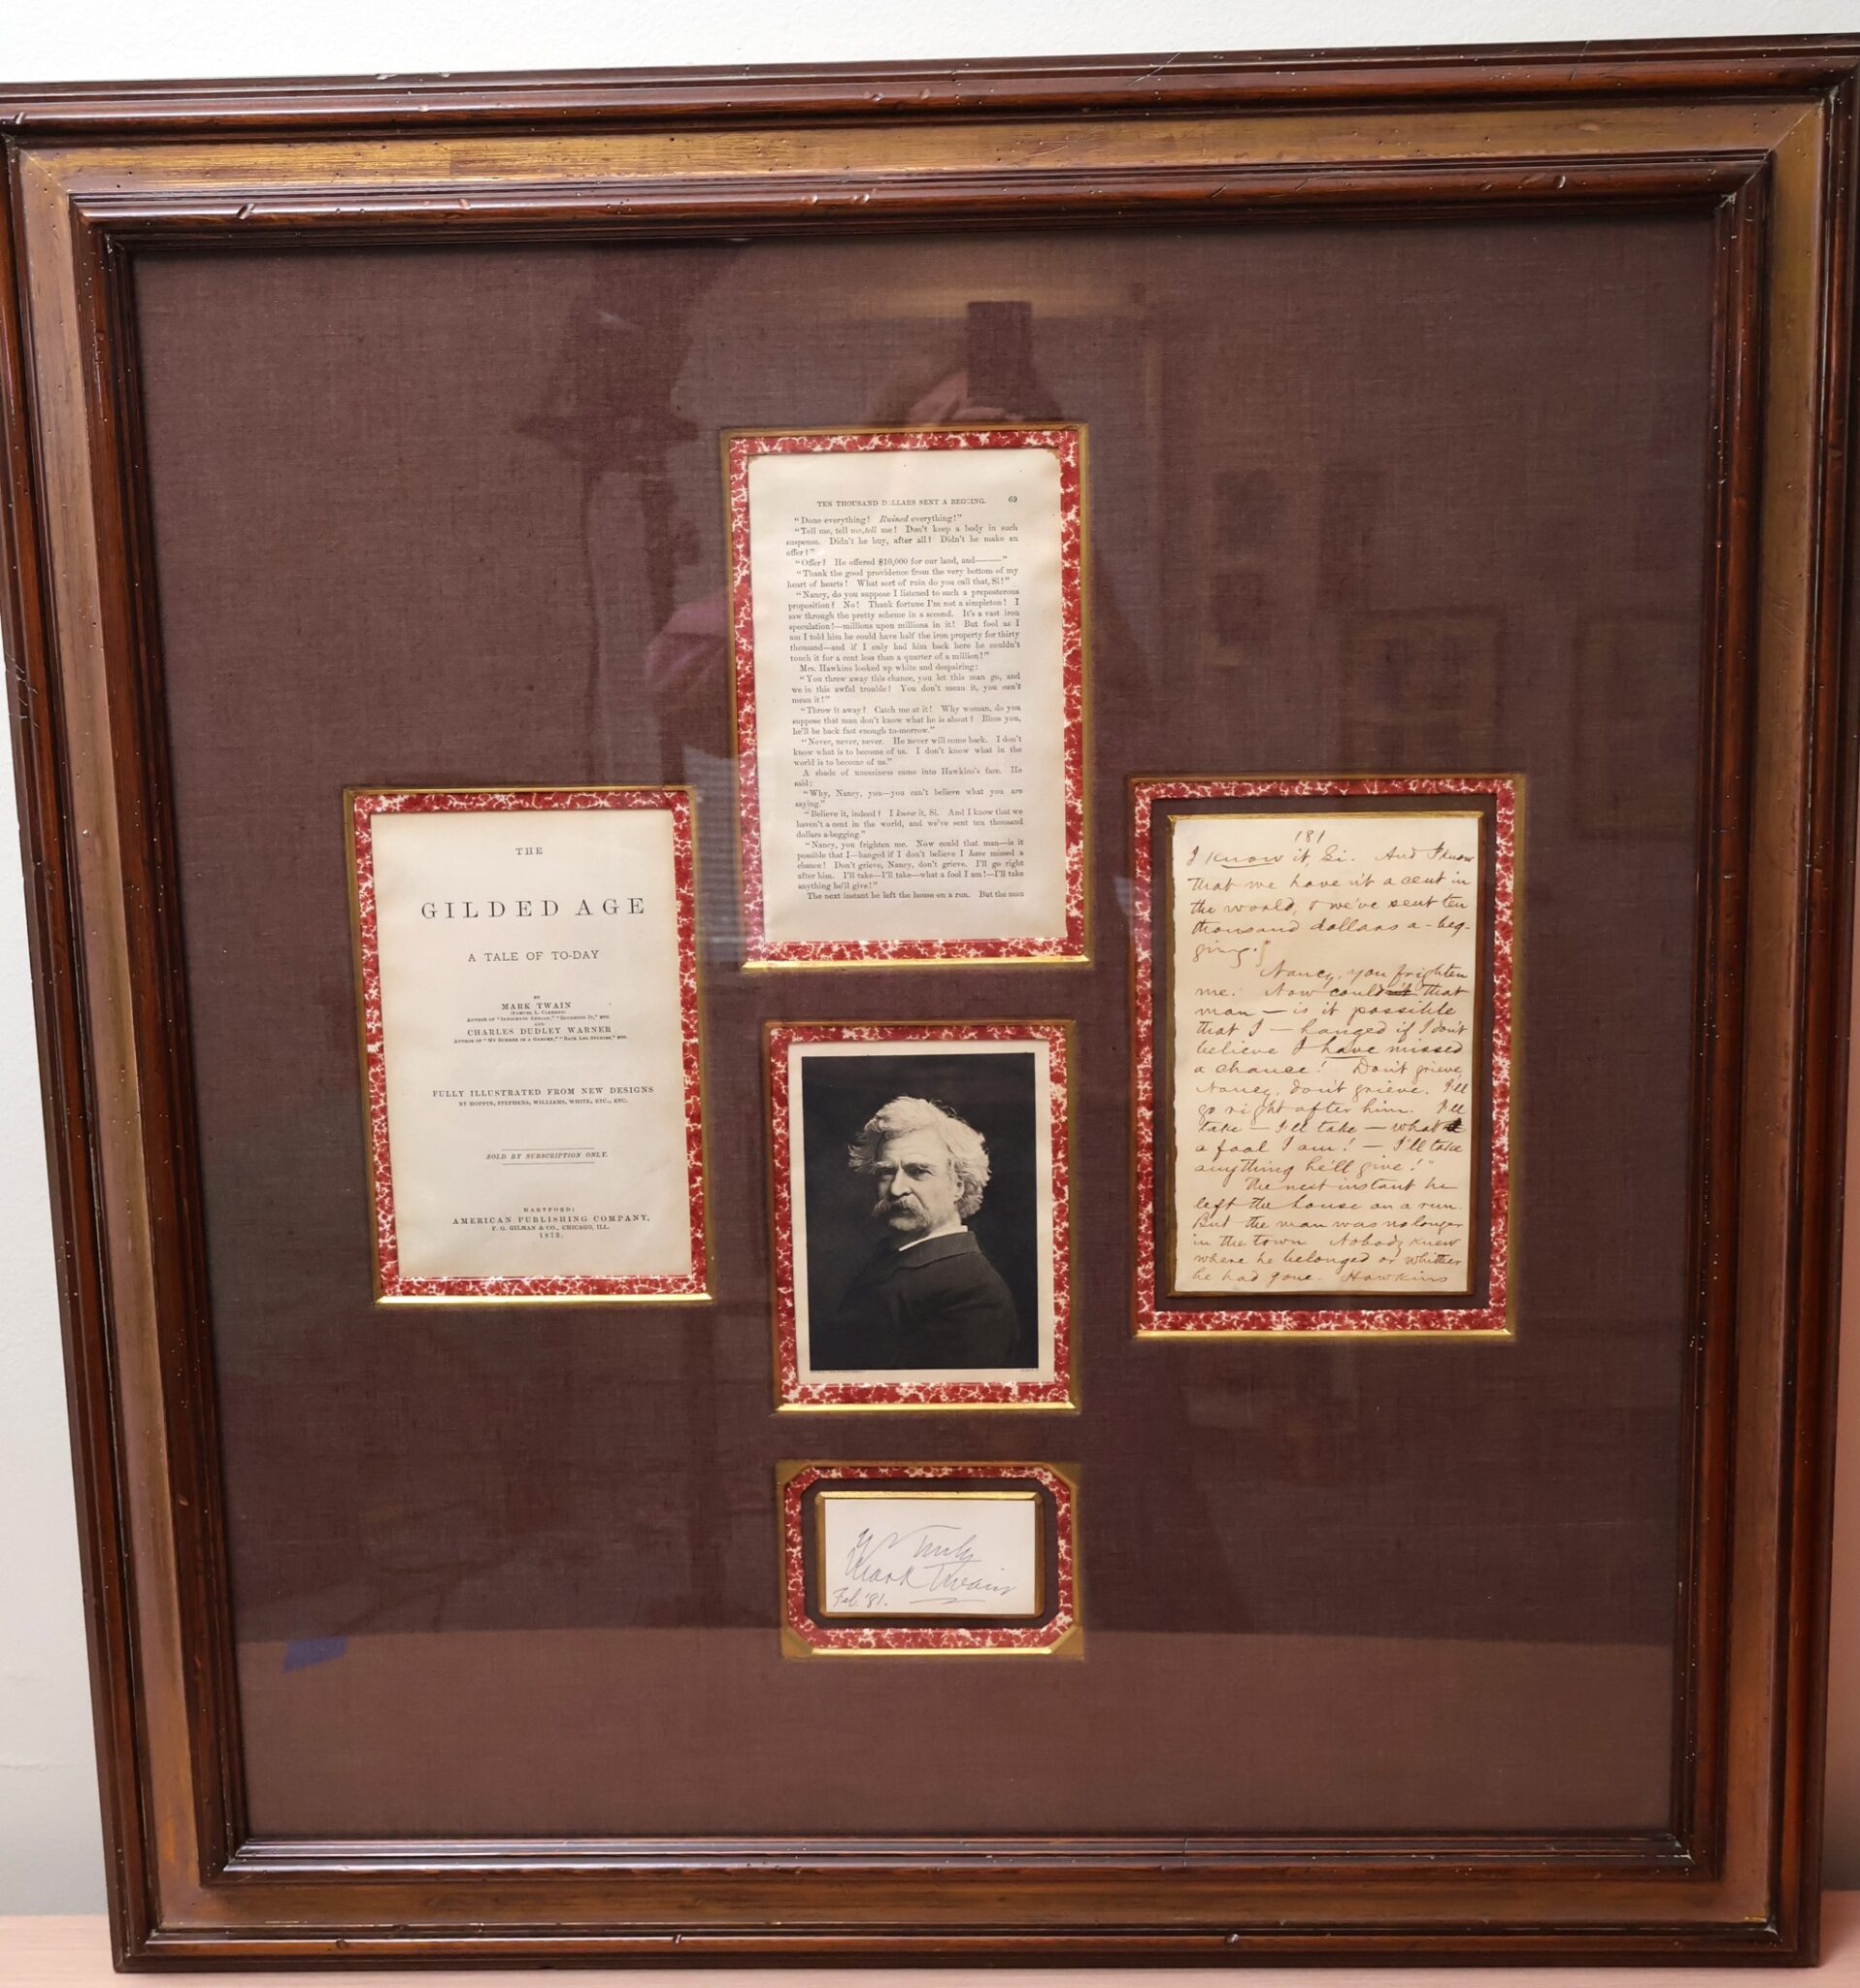 TEN THOUSAND DOLLARS SENT A BEGGING. 69
"Done everything! Ruined everything!"
"Tell me, tell me, tell me! Don't keep a body in such
suspense. Didn't he buy, after all? Didn't he make an
offer?"
"Offer? He offered $10,000 for our land, and——"
"Thank the good providence from the very bottom of my
heart of hearts! What sort of ruin do you call that, Si!"
"Nancy, do you suppose I listened to such a preposterous
proposition? No! Thank fortune I'm not a simpleton! I
saw through the pretty scheme in a second. It's a vast iron
speculation!—millions upon millions in it! But fool as I
am I told him he could have half the iron property for thirty
thousand—and if I only had him back here he couldn't
touch it for a cent less than a quarter of a million!"
Mrs. Hawkins looked up white and despairing:
"You threw away this chance, you let this man go, and
we in this awful trouble? You don't mean it, you can't
mean it!"
"Throw it away? Catch me at it! Why woman, do you
suppose that man don't know what he is about? Bless you,
he'll be back fast enough to-morrow."
"Never, never, never. He never will come back. I don't
know what is to become of us. I don't know what in the
world is to become of us."
A shade of uneasiness came into Hawkins's face. He
said:
"Why, Nancy, you—you can't believe what you are
saying."
"Believe it, indeed? I know it, Si. And I know that we
haven't a cent in the world, and we've sent ten thousand
dollars a-begging."
"Nancy, you frighten me. Now could that man—is it
possible that I—hanged if I don't believe I have missed a
chance! Don't grieve, Nancy, don't grieve. I'll go right
after him. I'll take—I'll take—what a fool I am!—I'll take
anything he'll give!"
The next instant he left the house on a run. But the man
THE
GILDED AGE
A TALE OF TO-DAY
BY
MARK TWAIN
(SAMUEL L. CLEMENS)
AUTHOR OF "INNOCENTS ABROAD," "ROUGHING IT," ETC.
AND
CHARLES DUDLEY WARNER
AUTHOR OF "MY SUMMER IN A GARDEN," "BACK LOG STUDIES," ETC.
FULLY ILLUSTRATED FROM NEW DESIGNS
BY HOPPIN, STEPHENS, WILLIAMS, WHITE, ETC., ETC.
SOLD BY SUBSCRIPTION ONLY.
HARTFORD:
AMERICAN PUBLISHING COMPANY,
F. G. GILMAN & CO., CHICAGO, ILL.
1873.
181
I know it, Si. And I know
that we haven't a cent in
the world, & we've sent ten
thousand dollars a-beg-
ging."
Nancy, you frighten
me. Now couldn't that
man — is it possible
that I — hanged if I don't
believe I have missed
a chance! Don't grieve,
Nancy, don't grieve. I'll
go right after him. I'll
take — I'll take — what
a fool I am! — I'll take
anything he'll give!"
The next instant he
left the house on a run.
But the man was no longer
in the town. Nobody knew
where he belonged or whither
he had gone. Hawkins
Yrs Truly
Mark Twain
Feb. '81.